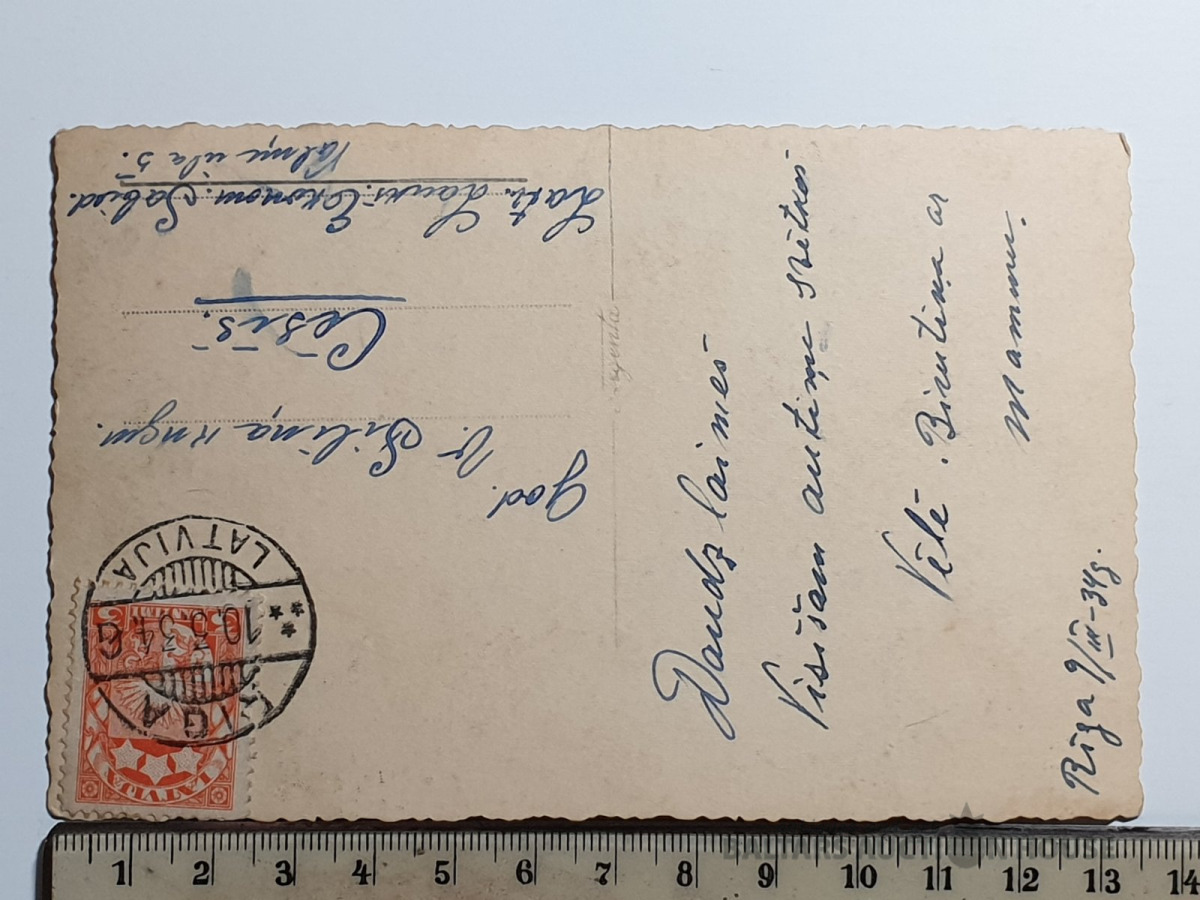 Daudz laimes
Visišam autiņu svētkos
Vēlē. Birutiņa ar
Mammu.
Rīga 9/III-34g.
God.
V. Siliņa kngm.
Cēsīs.
Latv. Lauks. Ekonom. Sabied.
Valmi. iela 5.
RIGA
LATVIJA
10.3.34. G
LATVIJA
1 2 3 4 5 6 7 8 9 10 11 12 13 14